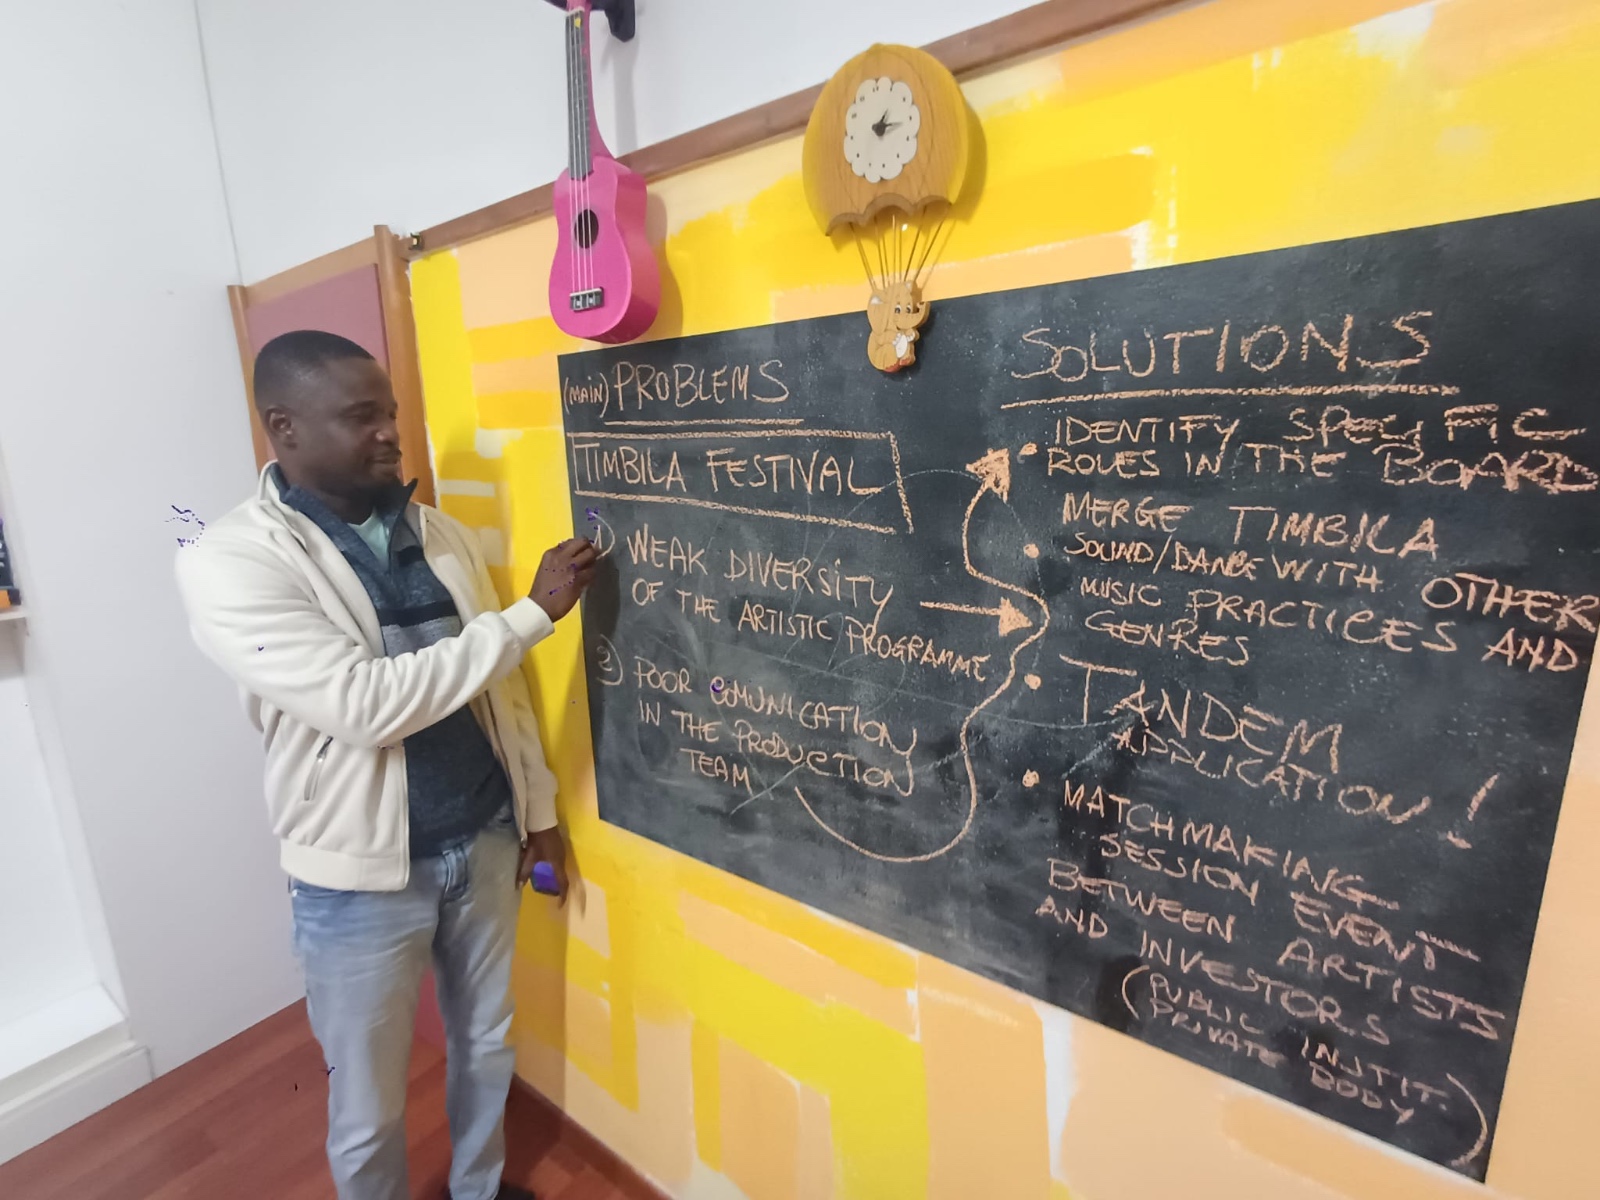 (MAIN) PROBLEMS
TIMBILA FESTIVAL
1) WEAK DIVERSITY
OF THE ARTISTIC PROGRAMME
2) POOR COMUNICATION
IN THE PRODUCTION
TEAM
SOLUTIONS
• IDENTIFY SPECIFIC
ROLES IN THE BOARD
• MERGE TIMBILA
SOUND/DANCE WITH OTHER
MUSIC PRACTICES AND
GENRES
• TANDEM
APPLICATION!
• MATCHMAKING
SESSION EVENT
BETWEEN ARTISTS
AND INVESTORS
(PUBLIC INSTIT.
PRIVATE BODY)